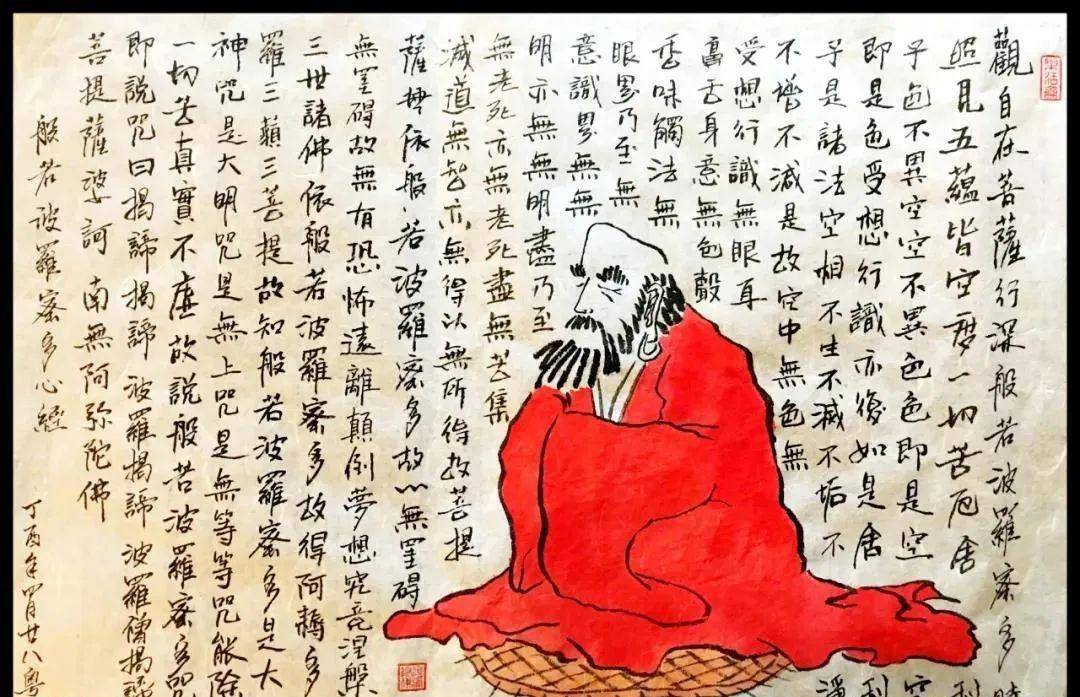 觀自在菩薩行深般若波羅蜜多時
照見五蘊皆空度一切苦厄舍利
子色不異空空不異色色即是空空
即是色受想行識亦復如是舍利
子是諸法空相不生不滅不垢不淨
不增不減是故空中無色無
受想行識無眼耳
鼻舌身意無色聲
香味觸法無
眼界乃至無
意識界無無
明亦無無明盡乃至
無老死亦無老死盡無苦集
滅道無智亦無得以無所得故菩提
薩埵依般若波羅蜜多故心無罣碍
無罣碍故無有恐怖遠離顛倒夢想究竟涅槃
三世諸佛依般若波羅蜜多故得阿耨多
羅三藐三菩提故知般若波羅蜜多是大
神咒是大明咒是無上咒是無等等咒能除
一切苦真實不虛故說般若波羅蜜多咒
即說咒曰揭諦揭諦 波羅揭諦 波羅僧揭諦
菩提薩婆訶 南無阿弥陀佛
般若波羅蜜多心經
丁酉年四月廿八粵